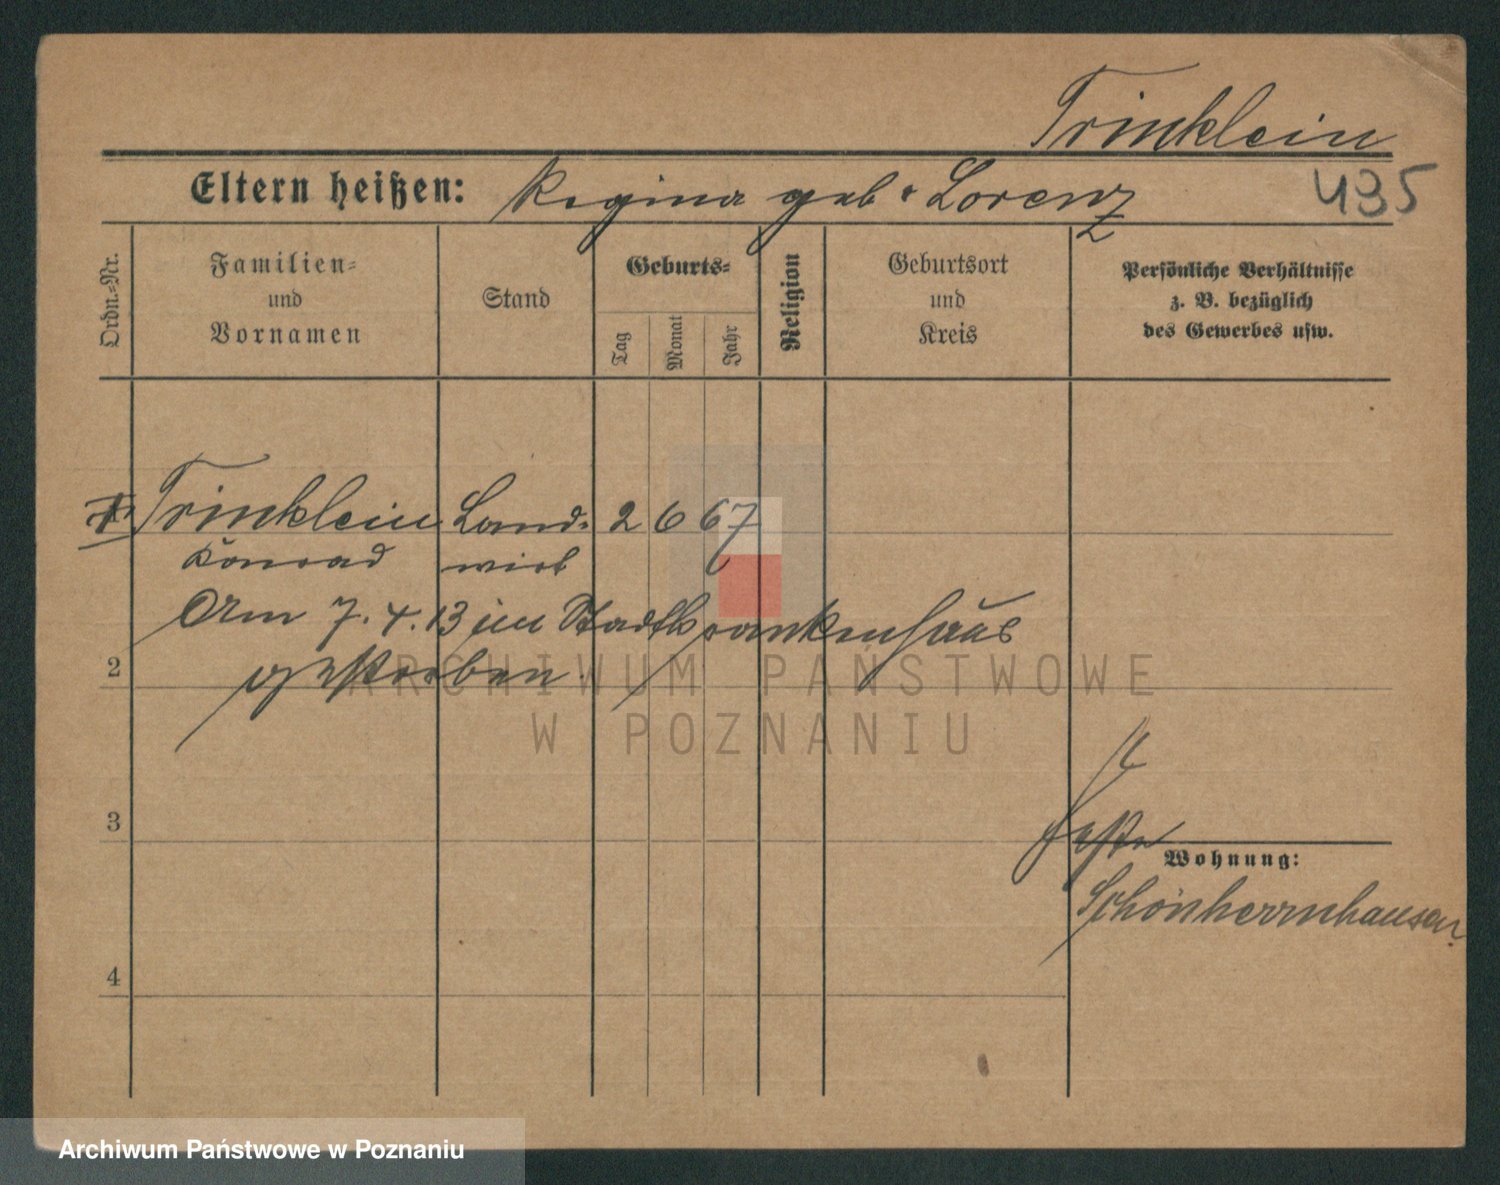 Trinklein
Eltern heißen: Regina geb. Lorenz
435
Ordn.=Nr.
Familien=
und
Vornamen
Stand
Geburts=
Tag
Monat
Jahr
Religion
Geburtsort
und
Kreis
Persönliche Verhältnisse
z. B. bezüglich
des Gewerbes usw.
1 Trinklein Land- 2 6 67
Konrad wirt
Am 7.4.13 im Stadtkrankenhaus
2
gestorben.
ARCHIWUM PAŃSTWOWE
W POZNANIU
3
Wohnung:
Schönherrnhausen
4
Archiwum Państwowe w Poznaniu